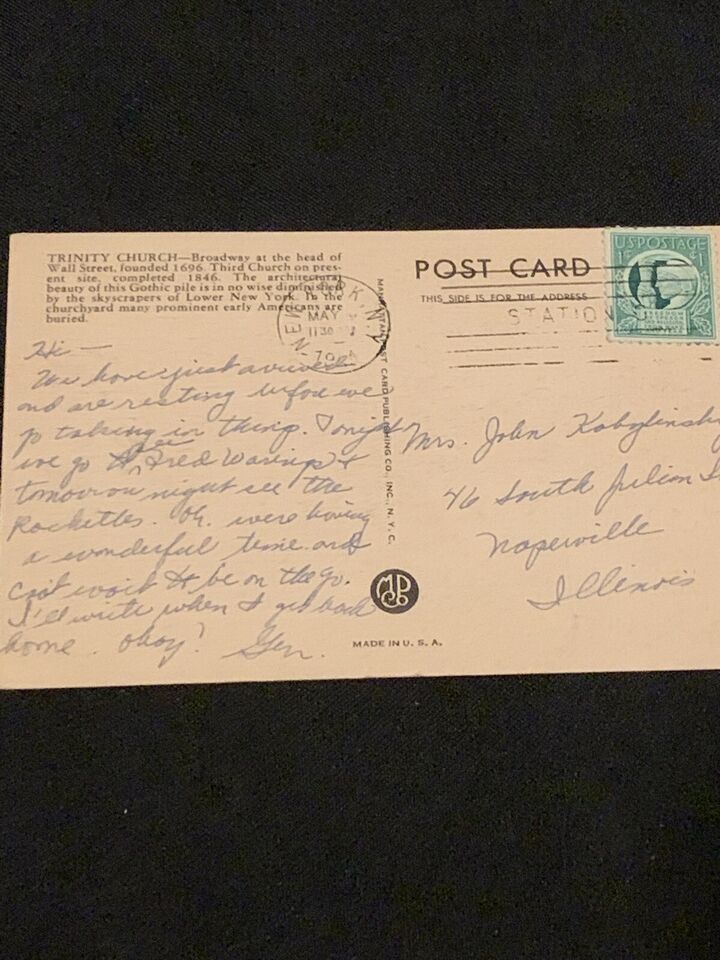 TRINITY CHURCH—Broadway at the head of
Wall Street, founded 1696. Third Church on pres-
ent site, completed 1846. The architectural
beauty of this Gothic pile is in no wise diminished
by the skyscrapers of Lower New York. In the
churchyard many prominent early Americans are
buried.
Hi —
We have just arrived
and are resting before we
go taking in things. Tonight
we go to see Fred Warings &
tomorrow night see the
Rockettes. Oh, were having
a wonderful time and
can't wait to be on the go.
I'll write when I get back
home. Okay? Gen.
NEW YORK, N.Y.
MAY
1130
MANHATTAN POST CARD PUBLISHING CO., INC., N. Y. C.
POST CARD
THIS SIDE IS FOR THE ADDRESS
STATION
U.S POSTAGE
1¢ 1¢
FREEDOM
Mrs. John Kobylinski
46 South Julian St
Naperville
Illinois
MPCo
MADE IN U. S. A.